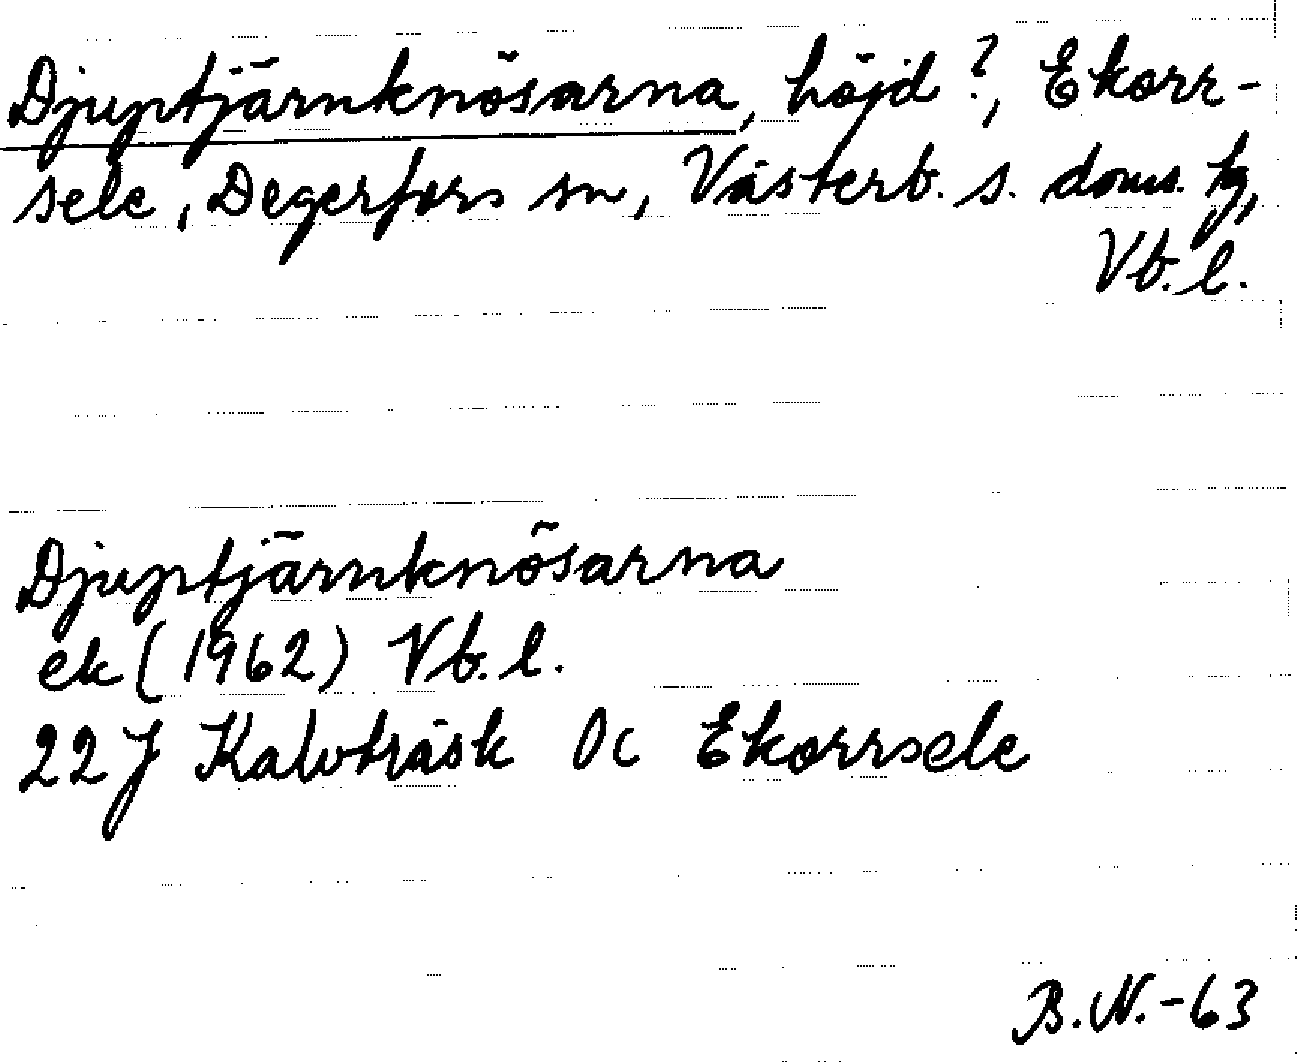 Djuptjärnknösarna, höjd ?, Ekorr-
sele, Degerfors sn, Västerb. s. doms. hg,
Vb. l.
Djuptjärnknösarna
ek (1962) Vb. l.
22 J Kalvträsk Oc Ekorrsele
B.N.-63